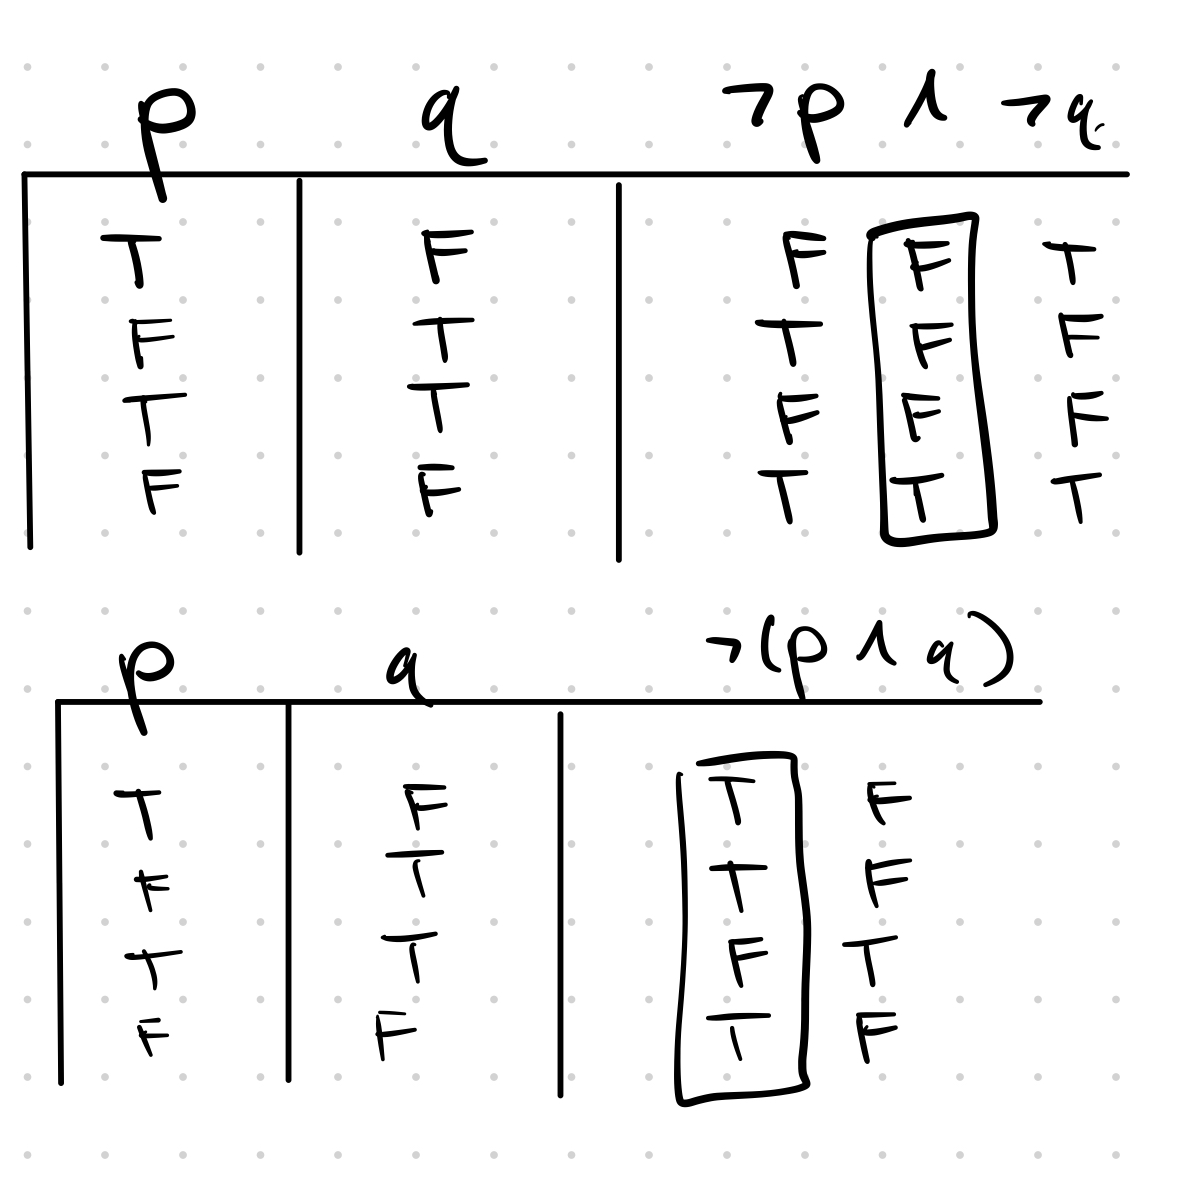 p q ¬p ∧ ¬q
T F F F T
F T T F F
T T F F F
F F T T T
p q ¬(p ∧ q)
T F T F
F T T F
T T F T
F F T F